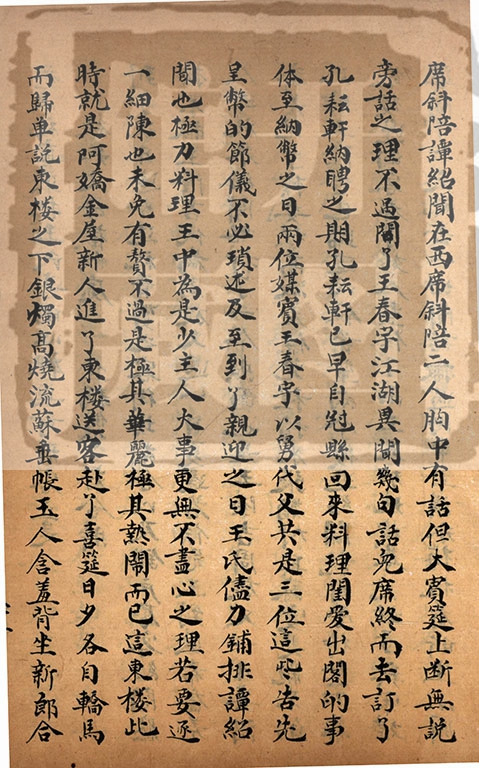 席斜陪譚紹聞在西席斜陪二人胸中有話但大賓筵上断無説
旁話之理不過聞了王春宇江湖異聞幾句話兒席終而去訂了
孔耘軒納聘之期孔耘軒已早自冠縣回來料理閨愛出閣的事
体至納幣之日兩位媒賓王春宇以舅代父共是三位這些告先
呈幣的節儀不必瑣述及至到了親迎之日王氏儘力鋪排譚紹
聞也極力料理王中為是少主人大事更無不盡心之理若要逐
一細陳也未免有贅不過是極其華麗極其熱鬧而已這東楼此
時就是阿嬌金屋新人進了東楼送客赴了喜筵日夕各自轎馬
而歸单説東楼之下銀燭髙燒流蘇垂帳玉人含羞背坐新郎合